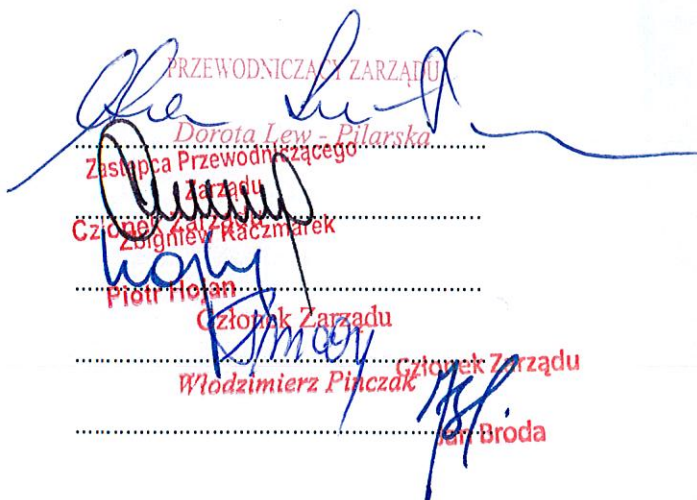 PRZEWODNICZĄCY ZARZĄDU
Dorota Lew - Pilarska
Zastępca Przewodniczącego
Zarządu
Zbigniew Kaczmarek
Członek Zarządu
Piotr Hojan
Członek Zarządu
Włodzimierz Pinczak
Członek Zarządu
Jan Broda